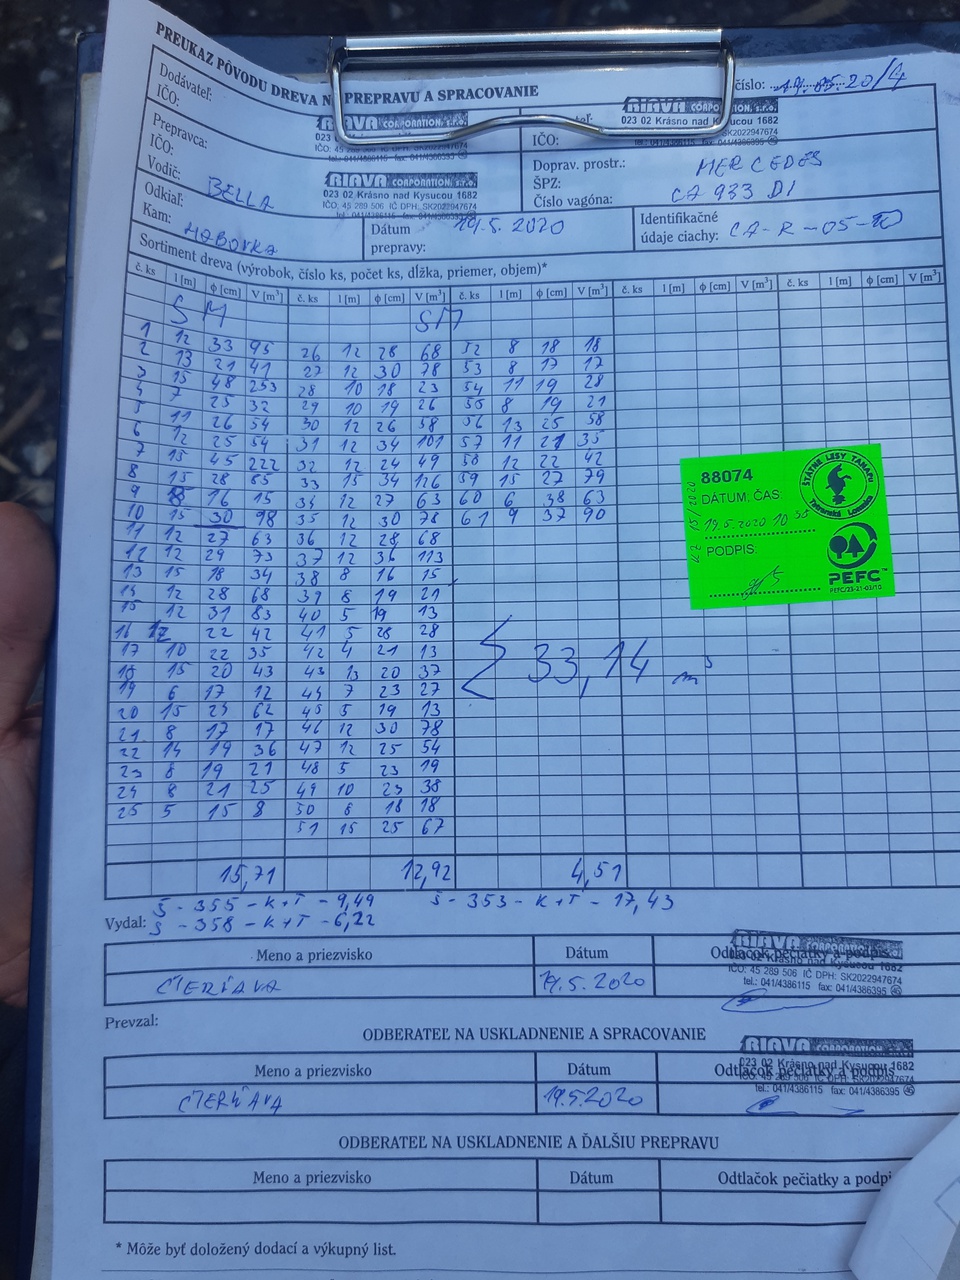 PREUKAZ PÔVODU DREVA N PREPRAVU A SPRACOVANIE
číslo: 19.05.20/4
Dodávateľ:
IČO:
RIAVA CORPORATION, s.r.o.
IČO: 45
tel.: 041/4386115 fax: 041/4386395
RIAVA CORPOR
023 02 Krásno nad Kysucou 1682
SK2022947674
041/4386395
IČO:
Prepravca:
IČO:
Vodič: BELLA
RIAVA CORPORATION, s.r.o.
023 02 Krásno nad Kysucou 1682
IČO: 45 289 506 IČ DPH: SK2022947674
tel.: 041/4386115 fax: 041/4386395
Doprav. prostr.: MERCEDES
ŠPZ: CA 933 DI
Číslo vagóna:
Odkiaľ: HABOVKA
Kam:
Dátum
prepravy: 19.5.2020
Identifikačné
údaje ciachy: CA-R-05-
Sortiment dreva (výrobok, číslo ks, počet ks, dĺžka, priemer, objem)*
č. ks l [m] ϕ [cm] V [m³] č. ks l [m] ϕ [cm] V [m³] č. ks l [m] ϕ [cm] V [m³] č. ks l [m] ϕ [cm] V [m³] č. ks l [m] ϕ [cm] V [m³]
SM SM
1 12 33 95 26 12 28 68 52 8 18 18
2 13 21 41 27 12 30 78 53 8 17 17
3 15 48 253 28 10 18 23 54 11 19 28
4 7 25 32 29 10 19 26 55 8 19 21
5 11 26 54 30 12 26 58 56 13 25 58
6 12 25 54 31 12 34 101 57 11 21 35
7 15 45 222 32 12 24 49 58 12 22 42
8 15 28 85 33 15 34 126 59 15 27 79
9 8 16 15 34 12 27 63 60 6 38 63
10 15 30 98 35 12 30 78 61 9 37 90
11 12 27 63 36 12 28 68
12 12 29 73 37 12 36 113
13 15 18 34 38 8 16 15
14 12 28 68 39 8 19 21
15 12 31 83 40 5 19 13
16 12 22 42 41 5 28 28
17 10 22 35 42 4 21 13
18 15 20 43 43 13 20 37
19 6 17 12 44 7 23 27
20 15 24 62 45 5 19 13
21 8 17 17 46 12 30 78
22 14 19 36 47 12 25 54
23 8 19 21 48 5 23 19
24 8 21 25 49 10 23 38
25 5 15 8 50 8 18 18
51 15 25 67
Σ 33,14 m³
88074
DÁTUM, ČAS:
19.5.2020 10 55
PODPIS:
ŠTÁTNE LESY TANAPU
Tatranská Lomnica
PEFC™
PEFC/23-21-03/10
15,71 12,92 4,51
Š - 355 - K+T - 9,49 Š - 353 - K+T - 17,43
Š - 358 - K+T - 6,22
Vydal:
Meno a priezvisko Dátum Odtlačok pečiatky a podpis
ČTERŇAVA 19.5.2020
RIAVA CORPORATION, s.r.o.
023 02 Krásno nad Kysucou 1682
IČO: 45 289 506 IČ DPH: SK2022947674
tel.: 041/4386115 fax: 041/4386395
Prevzal:
ODBERATEĽ NA USKLADNENIE A SPRACOVANIE
Meno a priezvisko Dátum Odtlačok pečiatky a podpis
ČTERŇAVA 19.5.2020
RIAVA CORPORATION, s.r.o.
023 02 Krásno nad Kysucou 1682
IČO: 45 289 506 IČ DPH: SK2022947674
tel.: 041/4386115 fax: 041/4386395
ODBERATEĽ NA USKLADNENIE A ĎALŠIU PREPRAVU
Meno a priezvisko Dátum Odtlačok pečiatky a podpi
* Môže byť doložený dodací a výkupný list.